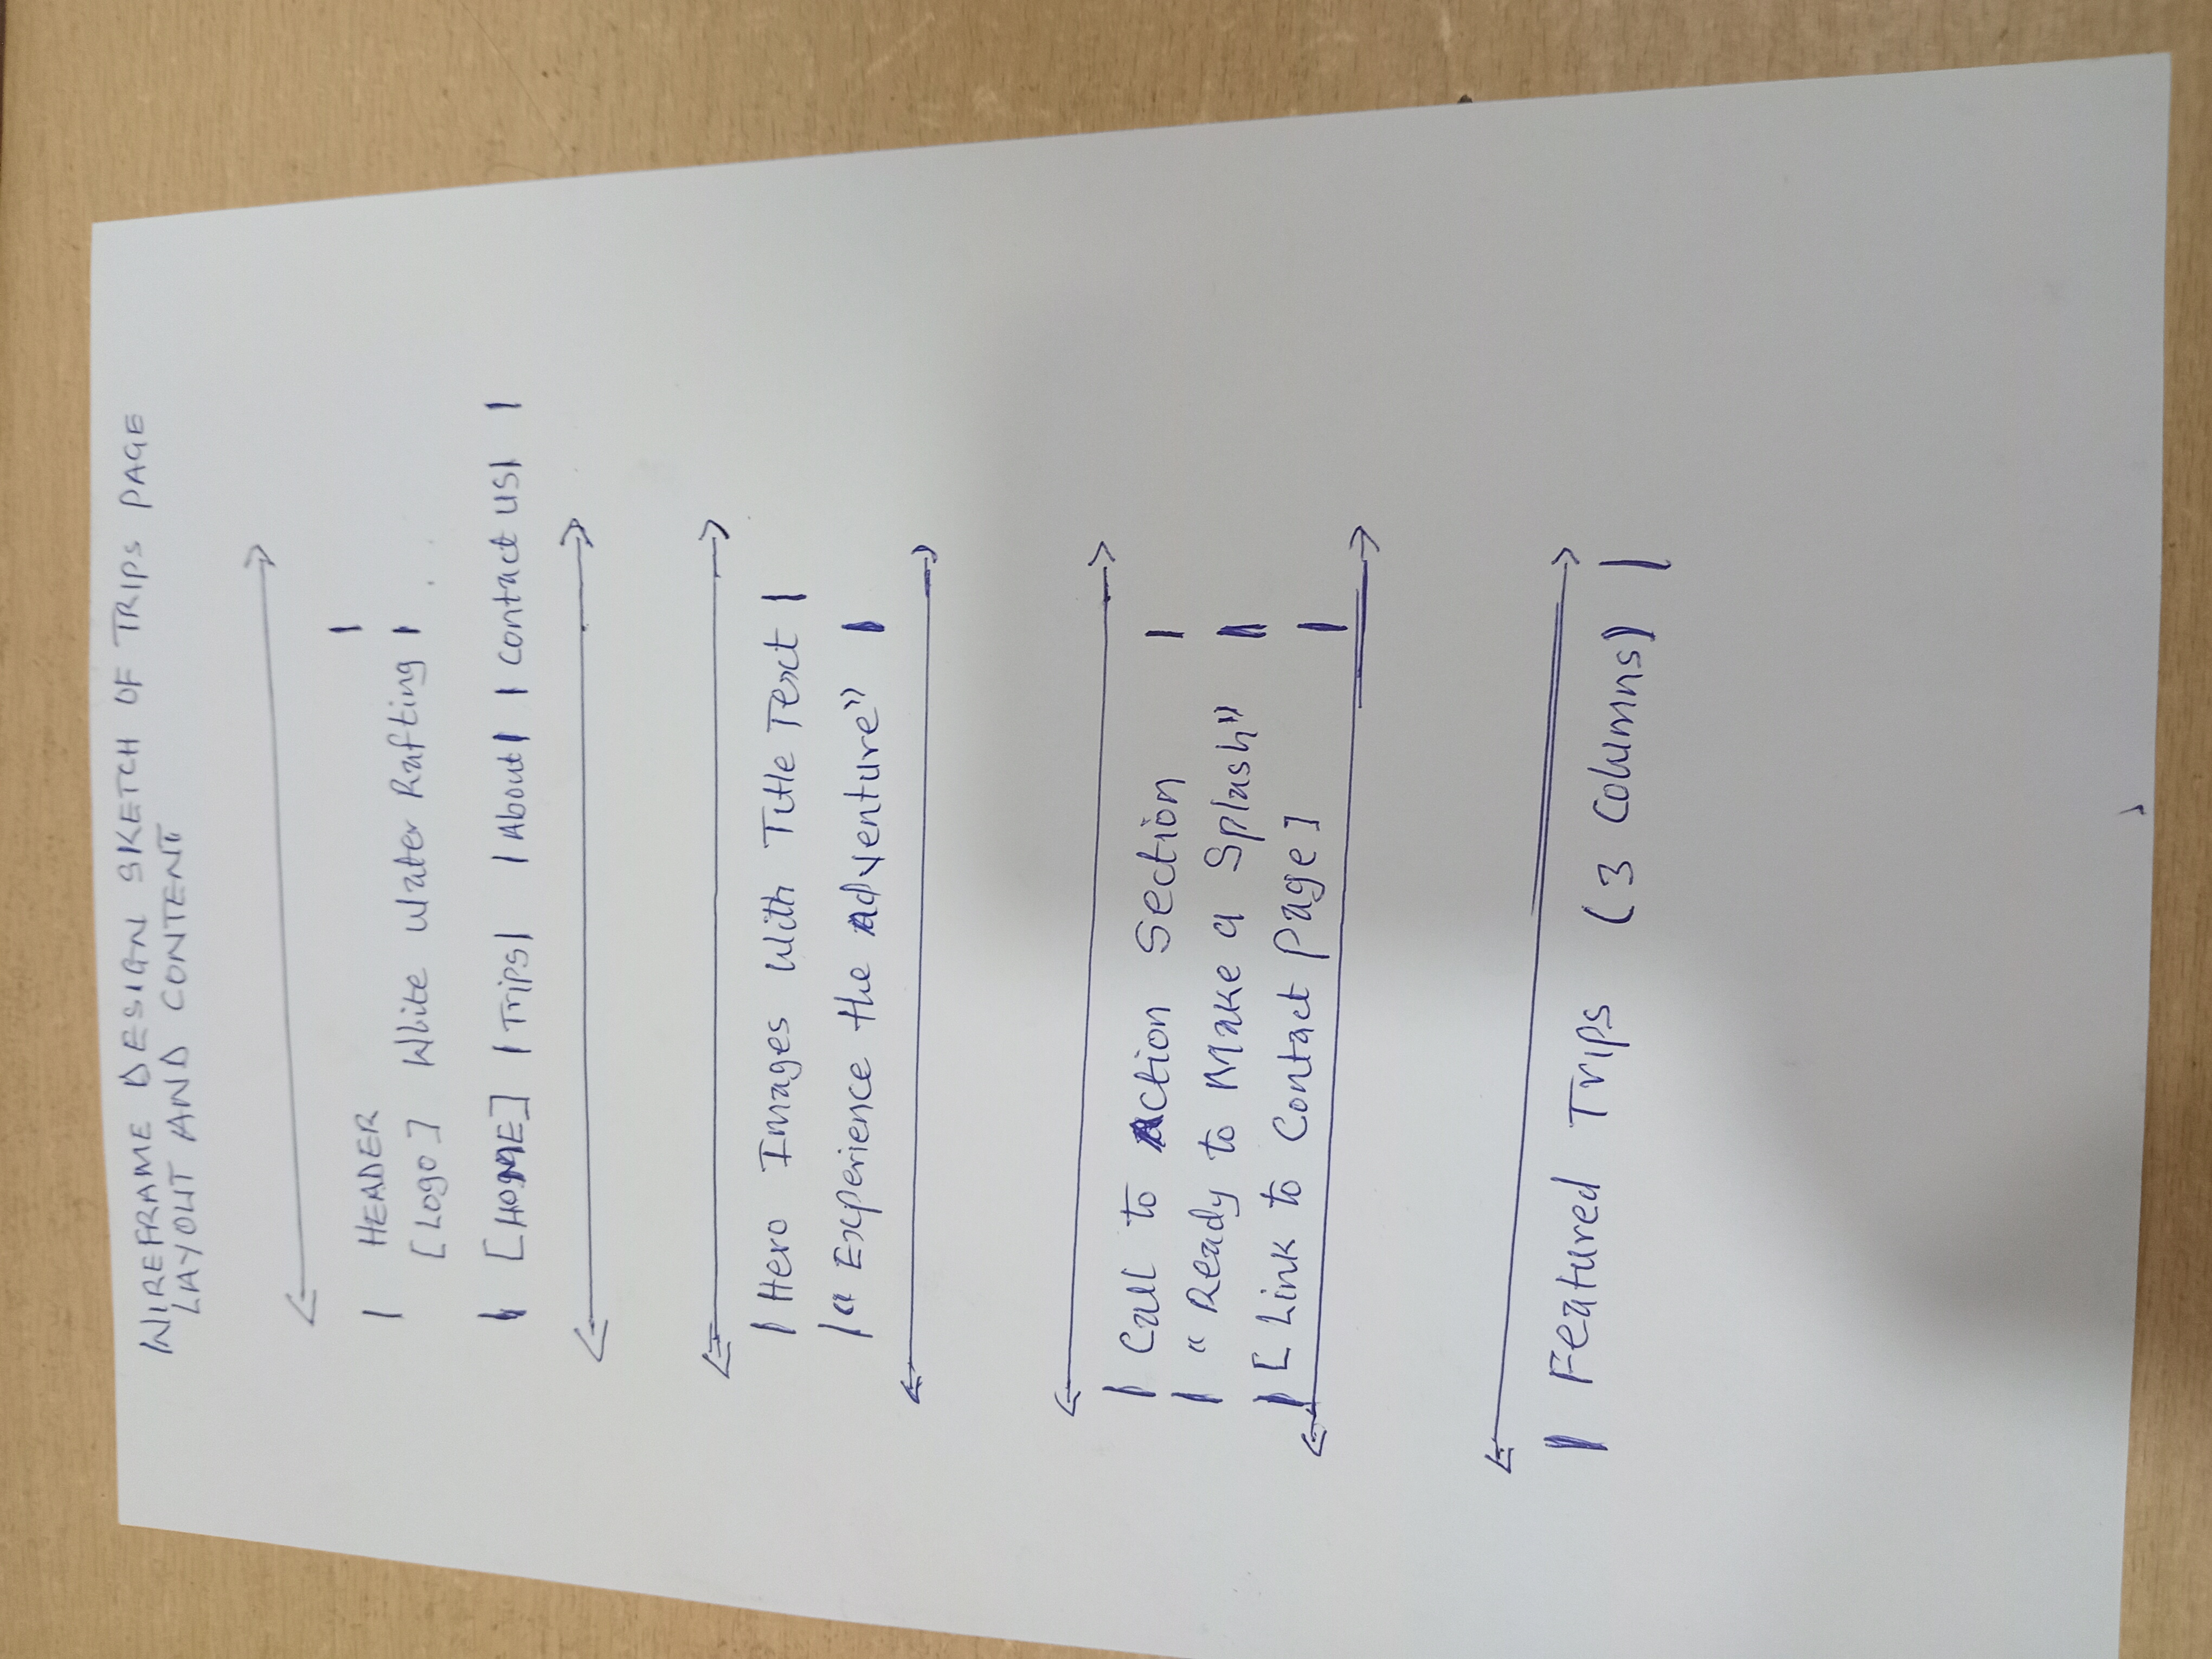 WIREFRAME DESIGN SKETCH OF TRIPS PAGE
LAYOUT AND CONTENT
| HEADER |
[Logo] White Water Rafting |
| [HOME] |Trips| |About| |Contact US| |
| Hero Images With Title Text |
|“ Experience the Adventure” |
| Call to Action Section |
| “ Ready to Make a Splash” |
| [ Link to Contact Page ] |
| Featured Trips (3 Columns) |